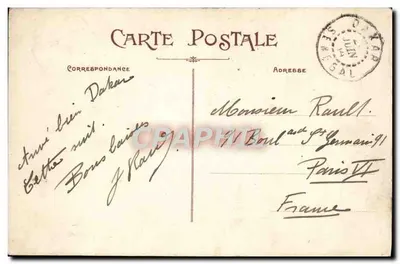 CARTE POSTALE
CORRESPONDANCE
ADRESSE
DAKAR
SENEGAL
JUIN
Arrivé bien Dakar
Lettre suit.
Bons baisers
Monsieur Rault.
91 Boulard St Germain 91
Paris VI
France
CPAPHIL